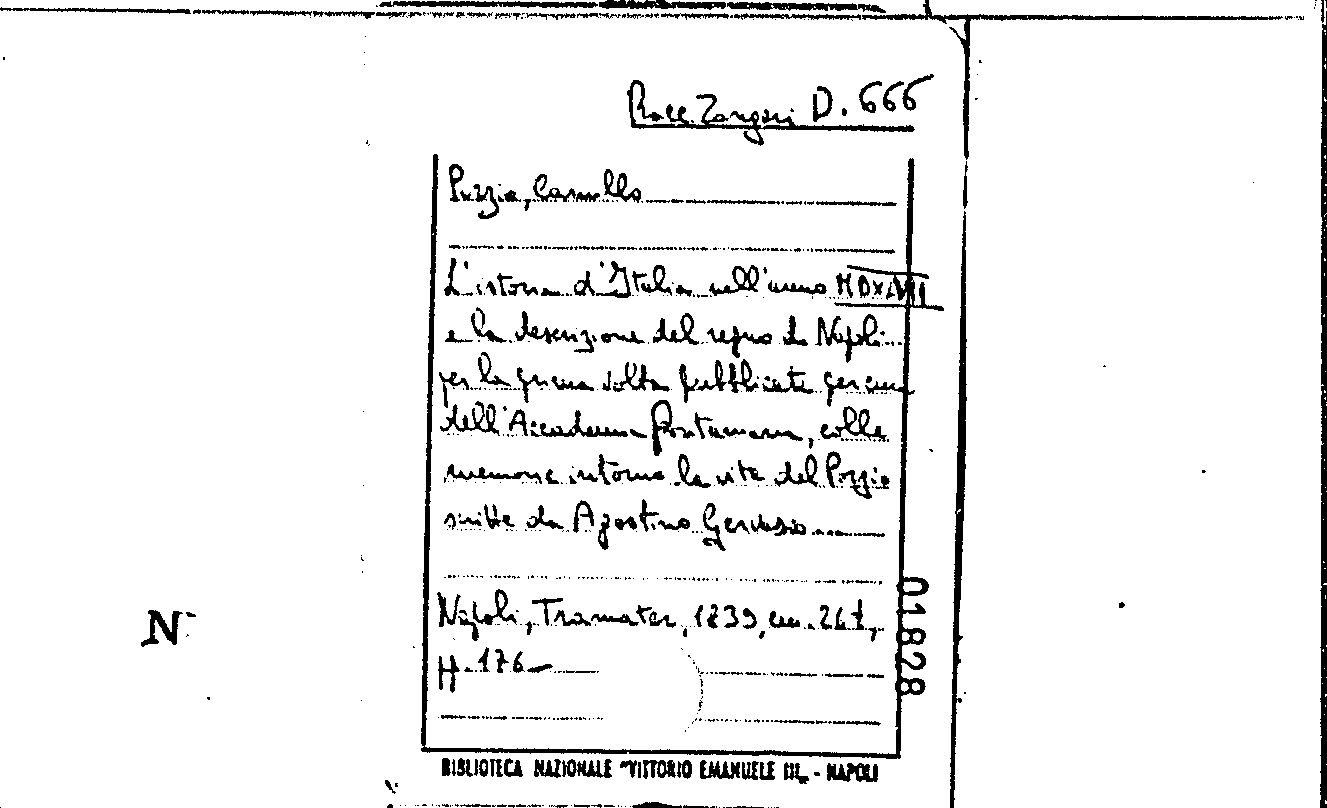 Racc. Zangari D. 666
Porzio, Camillo
L'istoria d'Italia nell'anno MDXLVII
e la descrizione del regno di Napoli
per la prima volta pubblicate per cura
dell'Accademia Pontaniana, colle
memorie intorno la vita del Porzio
scritte da Agostino Gervasio
Napoli, Tramater, 1839, cm.
pp. 176
01828
N
BIBLIOTECA NAZIONALE "VITTORIO EMANUELE III„ - NAPOLI